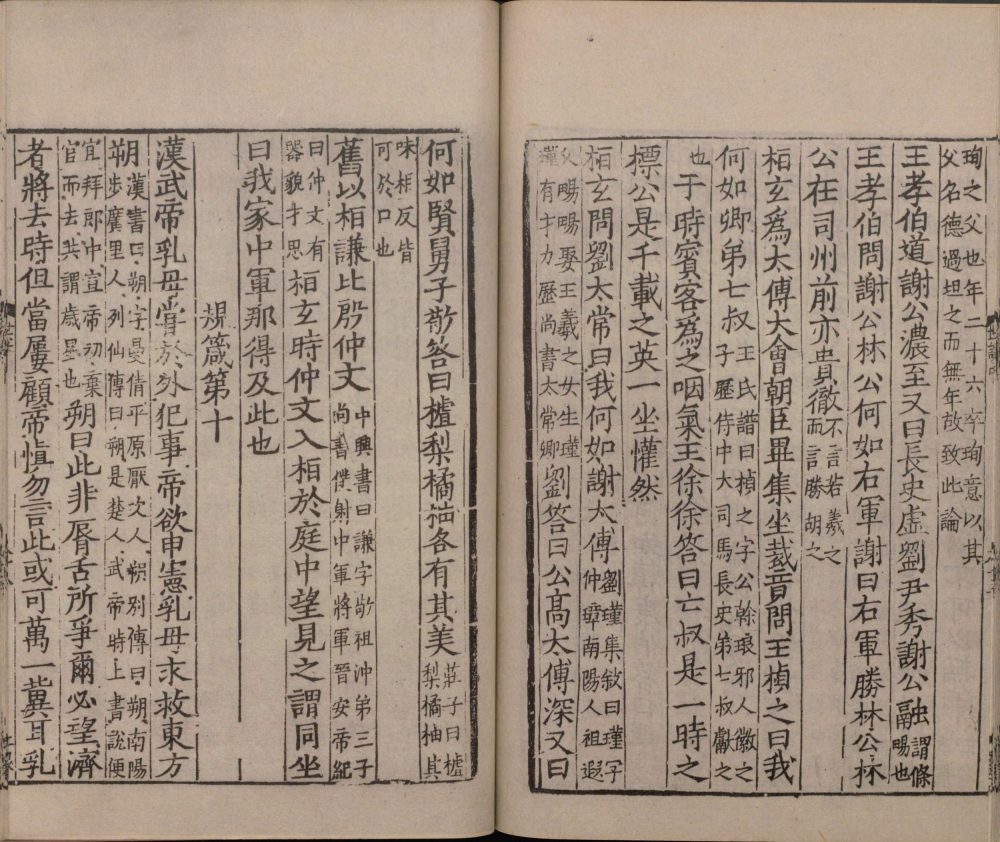 珣之父也年二十六卒珣意以其
父名德過坦之而無年故致此論
王孝伯道謝公濃至又曰長史虛劉尹秀謝公融謂條
暢也
王孝伯問謝公林公何如右軍謝曰右軍勝林公林
公在司州前亦貴徹不言若羲之
而言勝胡之
桓玄爲太傅大會朝臣畢集坐裁音問王楨之曰我
何如卿弟七叔王氏譜曰楨之字公幹琅邪人徽之
子歷侍中大司馬長史第七叔獻之
也于時賓客爲之咽氣王徐徐答曰亡叔是一時之
標公是千載之英一坐懽然
桓玄問劉太常曰我何如謝太傅劉瑾集敘曰瑾字
仲璋南陽人祖遐
父暢暢娶王羲之女生瑾
瑾有才力歷尚書太常卿劉答曰公高太傅深又曰
何如賢舅子敬答曰樝梨橘柚各有其美莊子曰樝
梨橘柚其
味相反皆
可於口也
舊以桓謙比殷仲文中興書曰謙字敬祖沖弟三子
尚書僕射中軍將軍晉安帝紀
曰仲文有
器貌才思桓玄時仲文入桓於庭中望見之謂同坐
曰我家中軍那得及此也
規箴第十
漢武帝乳母嘗於外犯事帝欲申憲乳母求救東方
朔漢書曰朔字曼倩平原厭次人朔別傳曰朔南陽
步廣里人列仙傳曰朔是楚人武帝時上書說便
宜拜郎中宣帝初棄
官而去共謂歲星也朔曰此非脣舌所爭爾必望濟
者將去時但當屢顧帝愼勿言此或可萬一冀耳乳